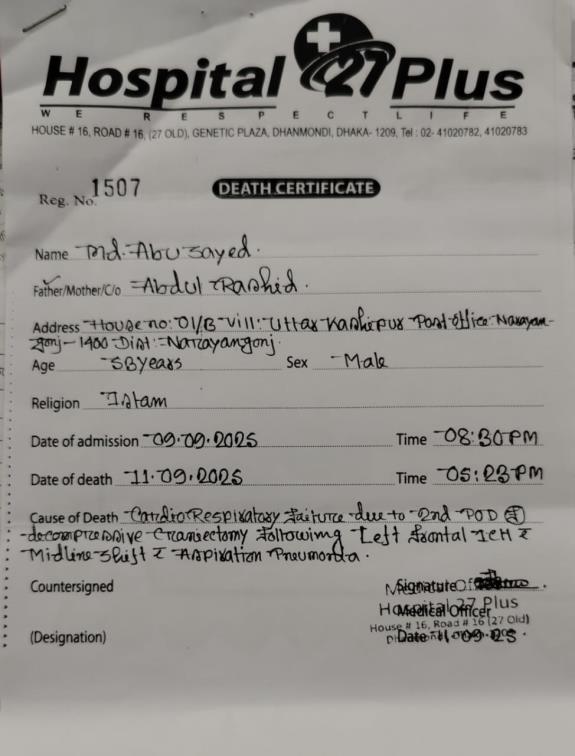 Hospital 27 Plus
WE RESPECT LIFE
HOUSE # 16, ROAD # 16, (27 OLD), GENETIC PLAZA, DHANMONDI, DHAKA- 1209, Tel : 02- 41020782, 41020783
Reg. No. 1507 DEATH CERTIFICATE
Name Md. Abu Sayed.
Father/Mother/C/o Abdul Rashid.
Address House no: 01/B Vill: Uttar Kashipur Post office Narayan-
gonj-1400 Dist: Narayangonj.
Age 58 years Sex Male
Religion Islam
Date of admission 09.09.2025 Time 08:30 PM
Date of death 11.09.2025 Time 05:23 PM
Cause of Death Cardio Respiratory Failure due to 2nd POD
decompressive Craniectomy following Left frontal ICH
Midline shift Aspiration Pneumonia.
Countersigned Signature
Medical Officer
Hospital 27 Plus
House # 16, Road # 16 (27 Old)
(Designation) Date 11.09.25